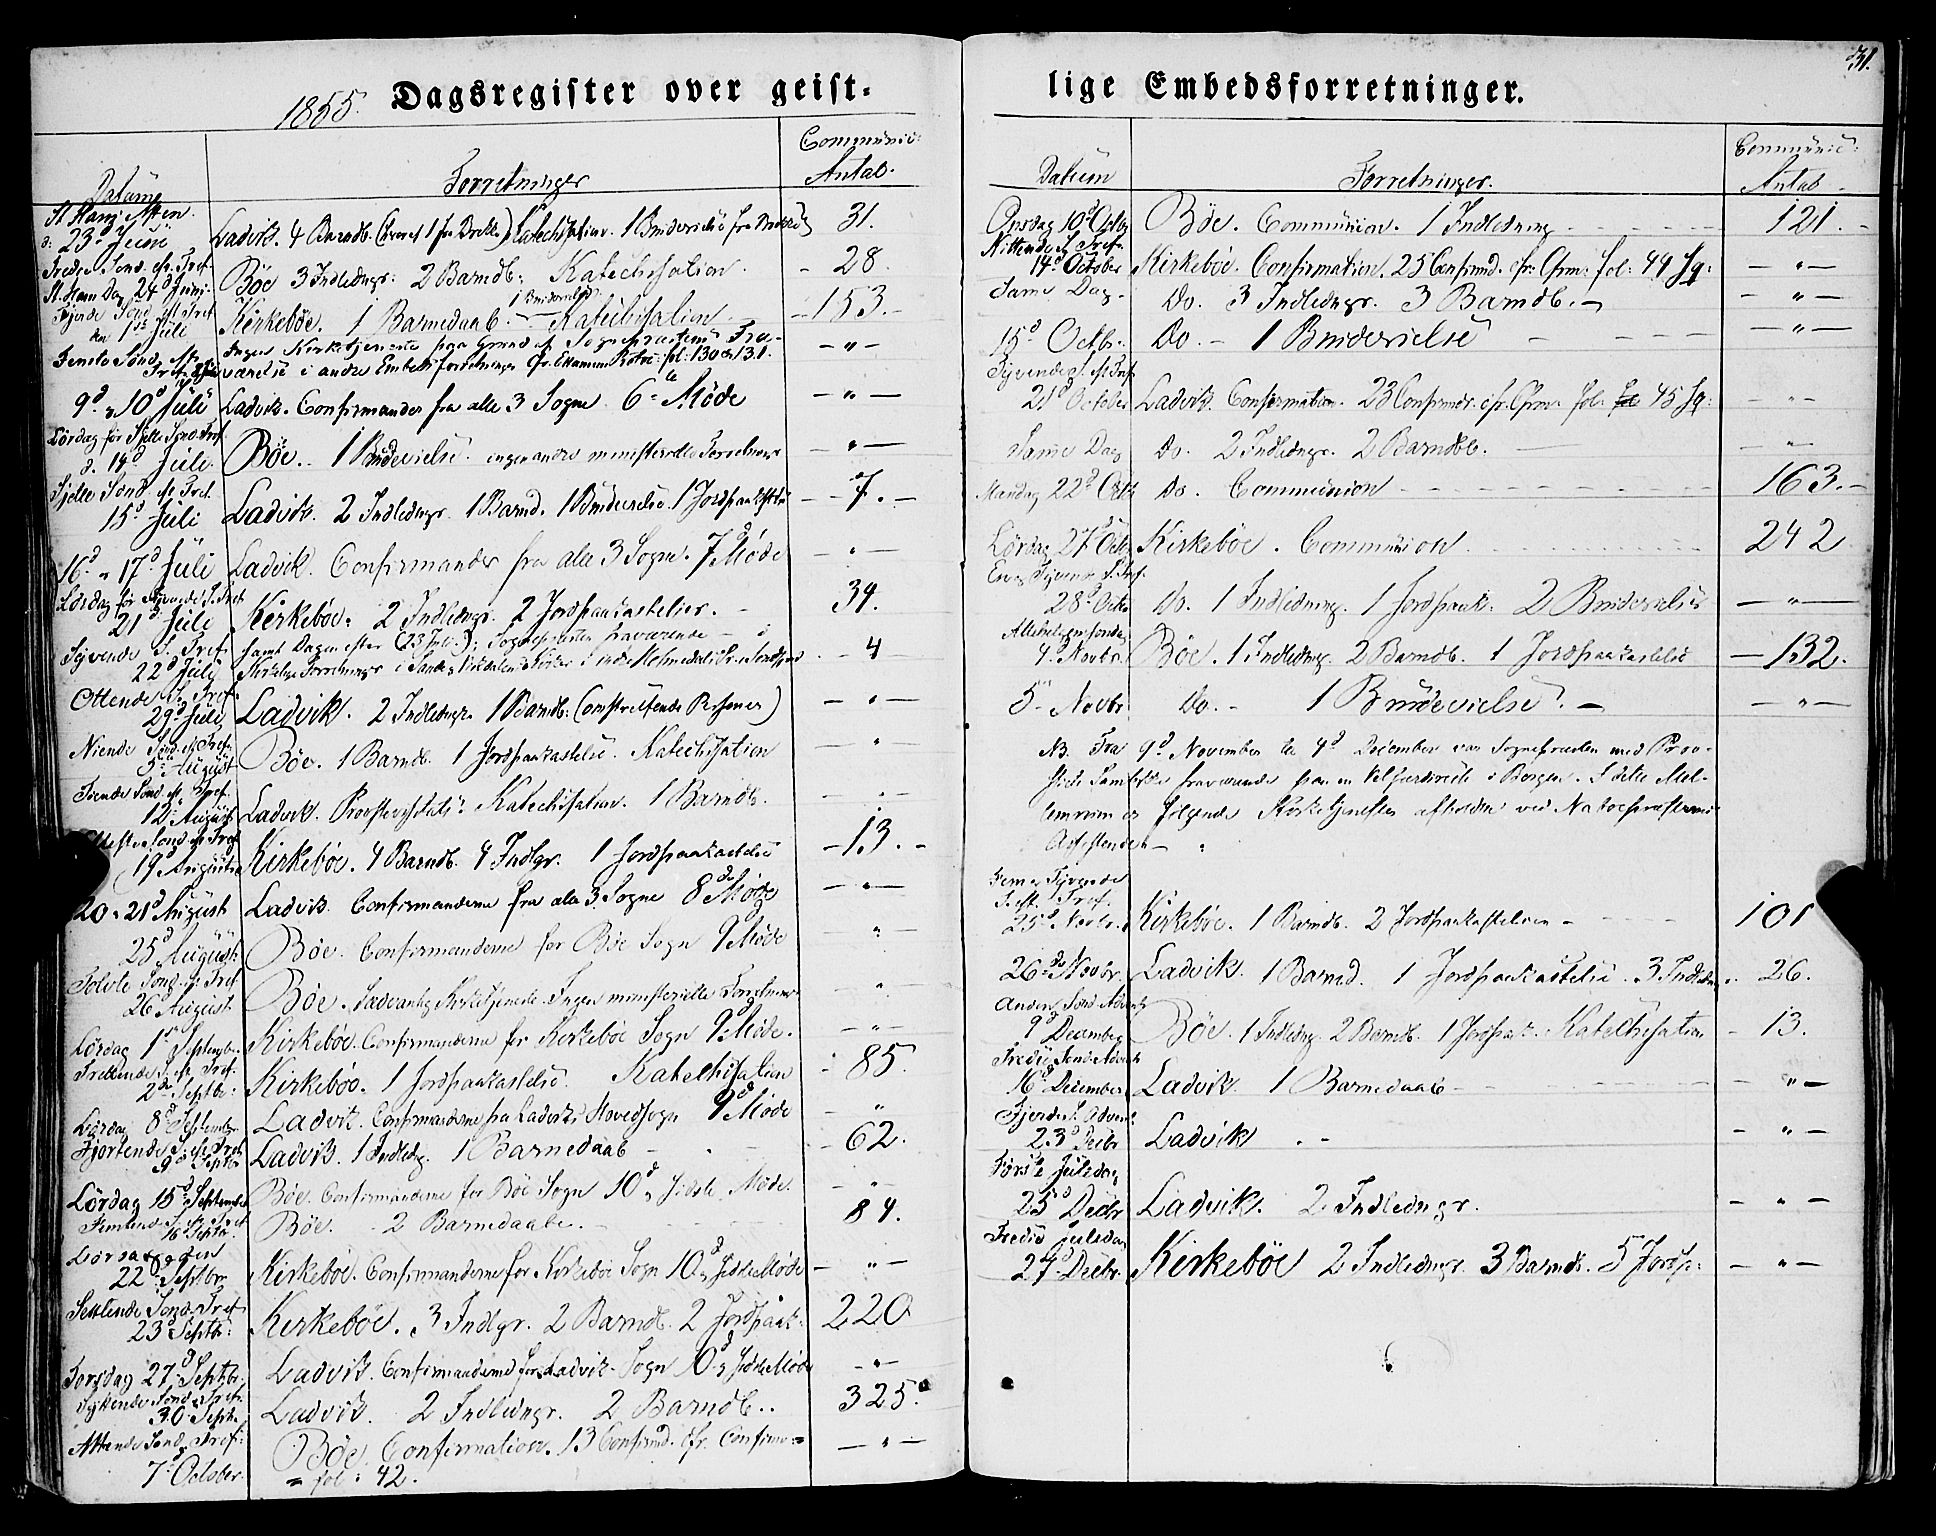 31.
1855. Dagsregister over geist-
lige Embedsforretninger.
Datum Forretninger Communic: Antal.
St. Hans Aften
d: 23d Juni Ladvik. 4 Barndb. Catechisation. 1 Brudevielse 31.
Tredie Sønd. ef. Tref.
St. Hans Dag 24d Juni Böe 3 Indledngr: 2 Barndb: Katechisation. - 28.
Fjerde Sønd. ef. Tref
den 1ste Juli Kirkeböe. 1 Barnedaab. 1 Brudevielse Katechisation - 153. -
Femte Sønd. eft. Tref. Ingen Kirketjeneste paa Grund af Sognepræstens Fra-
værelse i andre Embedsforretninger fol: 130 & 131. - " -
9d & 10d Juli Ladvik. Confirmander fra alle 3 Sogne 6te Møde - " -
Lørdag før Sjette Sønd. Tref.
d. 14d Juli. Böe. 1 Brudevielse. ingen andre ministerielle Forretninger - " -
Sjette Sønd. ef. Tref.
15d Juli Ladvik. 2 Indledngr. 1 Barnd. 1 Brudevielse. 1 Jordpaakastelse - 7. -
16d & 17d Juli Ladvik. Confirmander fra alle 3 Sogne. 7d Møde - " -
Lørdag før Syvende S. Tref
21d Juli Kirkeböe. 2 Indledngr. 2 Jordpaakastelser. - 34.
Syvende S. Tref. samt Dagen efter (23 Juli): Sognepræsten fraværende
22d July - 4
Ottende S. Tref.
29d Juli Ladvik. 2 Indledngr. 1 Barndb: (omstreifende Personer) - " -
Niende Sønd. ef. Tref.
5te August Böe. 1 Barndb. 1 Jordpaakastelse. Katechisation "
Tiende Sønd. ef. Tref.
12te August Ladvik. Provstevisitats: Katechisation. 1 Barndb. - " -
Ellefte Sønd. ef. Tref
19d August Kirkeböe. 4 Barndb. 4 Indlgr. 1 Jordpaakastelse - 13. -
20 & 21d August Ladvik. Confirmanderne fra alle 3 Sogne 8de Møde - " -
25d August Böe. Confirmanderne for Böe Sogn 9d Møde - " -
Tolvte Sønd. ef. Tref
26 August. Böe. Sædvanlig Kirketjeneste. Ingen ministerielle Forretninger "
Lørdag 1ste Septembr. Kirkeböe. Confirmanderne for Kirkeböe Sogn 9d Møde. - " -
Trettende S. ef. Tref.
2den Septbr: Kirkeböe. 1 Jordpaakastelse. Katechisation - 85.
Lørdag 8d Septembr Ladvik. Confirmanderne fra Ladviks Hovedsogn 9d Møde - "
Fjortende S. ef. Tref
9d Septbr Ladvik. 1 Indledng. 1 Barnedaab - 62.
Lørdag 15d September Böe. Confirmanderne for Böe Sogn 10d & sidste Møde. - "
Femtende S. ef. Tref
16 Septbr. Böe. 2 Barnedaabe. 84.
Lørdagen
22d Septbr Kirkeböe. Confirmanderne for Kirkeböe Sogn 10d & sidste Møde - " -
Settende Sønd. Tref
23d Septbr: Kirkeböe. 3 Indlgr. 2 Barndb. 2 Jordpaak. 220
Torsdag 27d Septbr. Ladvik. Confirmanderne for Ladvik Sogn 10d & sidste Møde - " -
Syttende Sønd. ef. Tref.
30 Septb. Ladvik. 2 Indledngr. 2 Barndb. 325.
Attende Sønd. Tref:
7d October. Böe. Confirmation. 13 Confirmd. cfr. Confirm:
fol: 42. - " -
Datum Forretninger. Communic: Antal
Onsdag 10d Octbr Böe. Communion. 1 Indledning 121. -
Nittende S. Tref.
14d October Kirkeböe. Confirmation. 25 Confirmd. cfr. Cfrm: fol: 44 sq: - " -
Samme Dag. Do. 3 Indledngr. 3 Barndb. - - " -
15d Octbr. Do. - 1 Brudevielse - " -
Tyvende S. eft. Tref
21d October Ladvik. Confirmation. 23 Confirmdr. cfr. Cfrm: fol: 45 sq: - " -
Samme Dag Do. 2 Indledngr. 2 Barndb. - " -
Mandag 22d Octb Do. Communion 163. -
Lørdag 27d Octb Kirkeböe. Communion 242
En & Tyvende S. Tref.
28d Octbr Do. 1 Indledning. 1 Jordpaak: 2 Brudevielser - " -
Allehelgensøndag
4. Novbr. Böe. 1 Indledng. 2 Barndb. 1 Jordpaakastelse - 132.
5te Novbr Do. - 1 Brudevielse. - - " -
NB. Fra 9d November til 4d December var Sognepræsten med Prov-
stiets Samtykke fraværende paa en Velfærdsreise i Bergen. I dette Mel-
lemrum er følgende Kirketjenester afholdne ved Nabopræsternes
Assistence -
Fem & Tyvende
S. eft. Tref.
25d Novbr. Kirkeböe. 1 Barndb. 2 Jordpaakastelser - 101
26de Novbr. Ladvik. 1 Barnd. 1 Jordpaakastelse. 3 Indledn. 26.
Anden Sønd. Advent
9d December Böe. 1 Indledng. 2 Barndb. 1 Jordpaak. Katechisation - 13.
Tredie Sønd. Advent
16d December Ladvik. 1 Barnedaab - " -
Fjerde S. Advent
23d Decbr Ladvik - " -
Første Juledag
25d Decbr Ladvik. 2 Indledngr. - " -
Tredie Juledag
27d Decbr. Kirkeböe 2 Indledngr. 3 Barndb. 5 Jordp: - " -